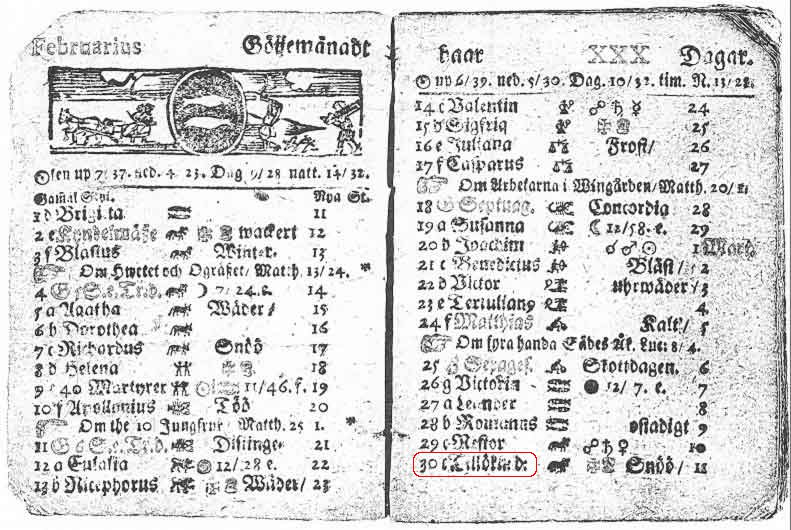 Februarius Göijemånadt
Solen up 7/37. ned. 4 23. Dag 9/28 natt. 14/32.
Gamal Styl. Nya St.
1 d Brigitta 11
2 e Kyndelmässe wackert 12
3 f Blasius Winter. 13
Om Hwetet och Ogräset/ Matth. 13/24.
4 G 5 S. e. Tr. d. 7/24. e. 14
5 a Agatha Wäder/ 15
6 b Dorothea 16
7 c Richardus Snöö 17
8 d Helena 18
9 e 40 Martyrer 11/46. f. 19
10 f Apollonius Töö 20
Om the 10 Jungfrur Matth. 25 1.
11 G 6 S. e. Tr. d. Distinge 21
12 a Eulalia 12/28 e. 22
13 b Nicephorus Wäder/ 23
haar XXX Dagar.
☉ up 6/39. ned. 5/30. Dag. 10/32. tim. N. 13/28.
14 c Valentin ☍ ♄ ☿ 24
15 d Sigfrid 25
16 e Juliana Frost/ 26
17 f Casparus 27
Om Arbetarna i Wingården/ Matth. 20/1.
18 G Septuag. Concordia 28
19 a Susanna ☾ 12/58. e. 29
20 b Joachim ☌ ♂ ☉ 1 Mart.
21 c Benedictus Bläst/ 2
22 d Victor uhrwäder/ 3
23 e Tertulian9 4
24 f Matthias Kalt/ 5
Om fyra handa Sädes Åk. Luc: 8/4.
25 G Sexages. Skottdagen. 6
26 g Victorin ● 12/7. e. 7
27 a Leander 8
28 b Romanus ostadigt 9
29 c Nestor ☍ ♄ ♀ 10
30 Snöö/ 11